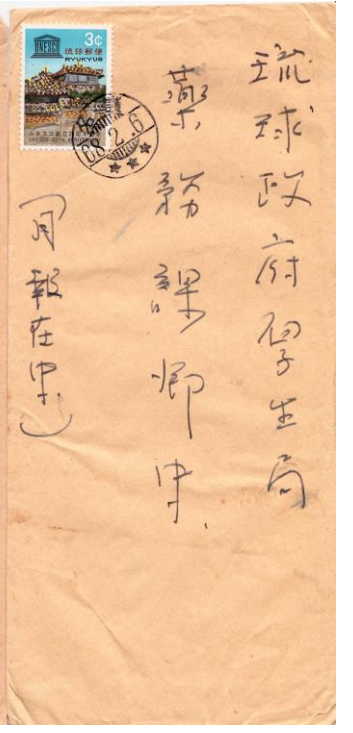 琉球政府厚生局
薬務課御中
(月報在中)
UNESCO
3¢
琉球郵便
RYUKYUS
68.2.6